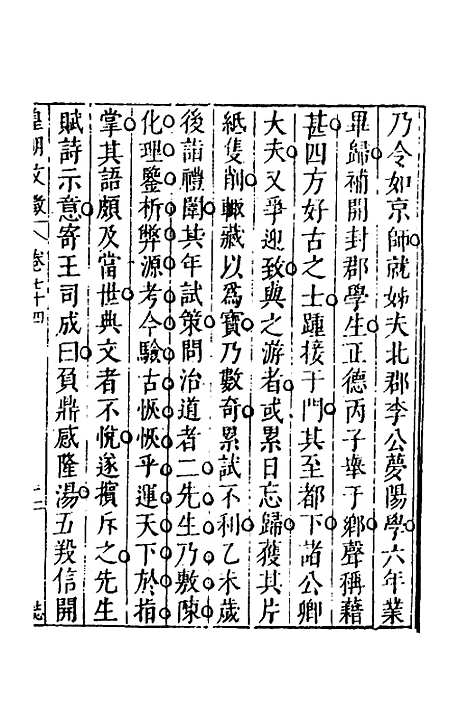 乃令如京師就姊夫北郡李公夢陽學六年業
畢歸補開封郡學生正德丙子舉于鄉聲稱藉
甚四方好古之士踵接于門其至都下諸公卿
大夫又爭迎致與之游者或累日忘歸獲其片
紙隻削輙藏以爲寶乃數奇累試不利乙未歲
後詣禮闈其年試策問治道者二先生乃敷陳
化理鑒析弊源考今驗古恢恢乎運天下於指
掌其語頗及當世典文者不悅遂擯斥之先生
賦詩示意寄王司成曰負鼎感隆湯五羖信開
皇明文徵 卷七十四 二 誌